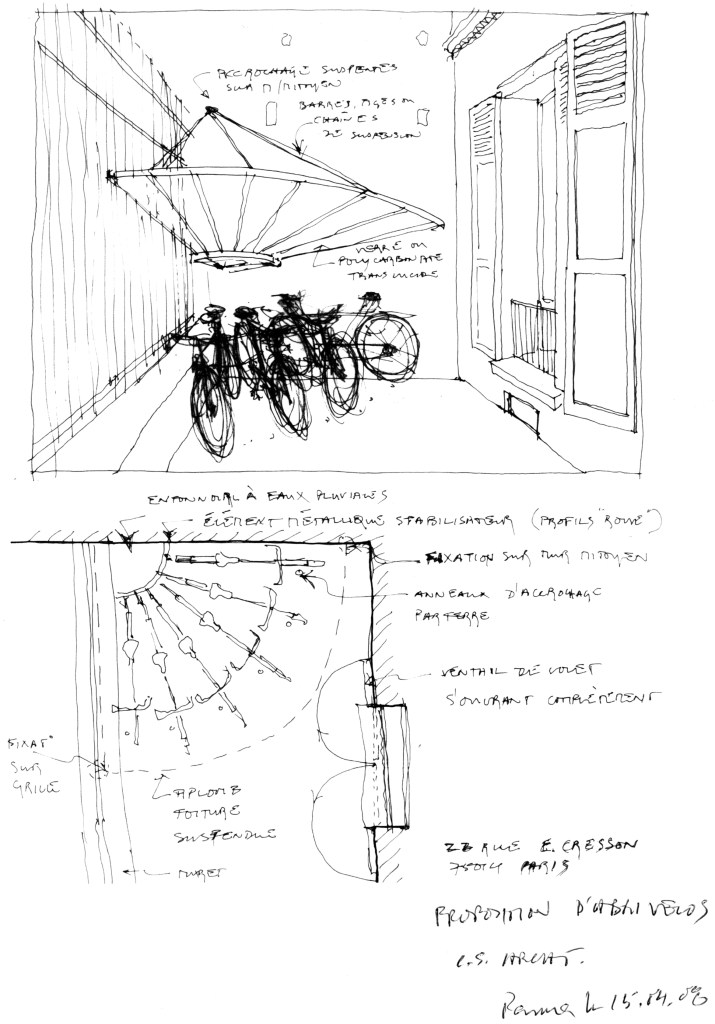 ACCROCHAGE SUSPENTES
SUR M/MITOYEN
BARRES, TIGES OU
CHAÎNES
DE SUSPENSION
VERRE OU
POLYCARBONATE
TRANSLUCIDE
ENTONNOIR À EAUX PLUVIALES
ÉLÉMENT MÉTALLIQUE STABILISATEUR (PROFILS "ROUE")
FIXATION SUR MUR MITOYEN
ANNEAUX D'ACCROCHAGE
PAR TERRE
VENTAIL DE VOLET
S'OUVRANT COMPLÈTEMENT
FIXAT°
SUR
GRILLE
APLOMB
TOITURE
SUSPENDUE
MURET
RUE E. CRESSON
75014 PARIS
PROPOSITION D'ABRI VÉLOS
C.S. ARCHIT.
15.04.08